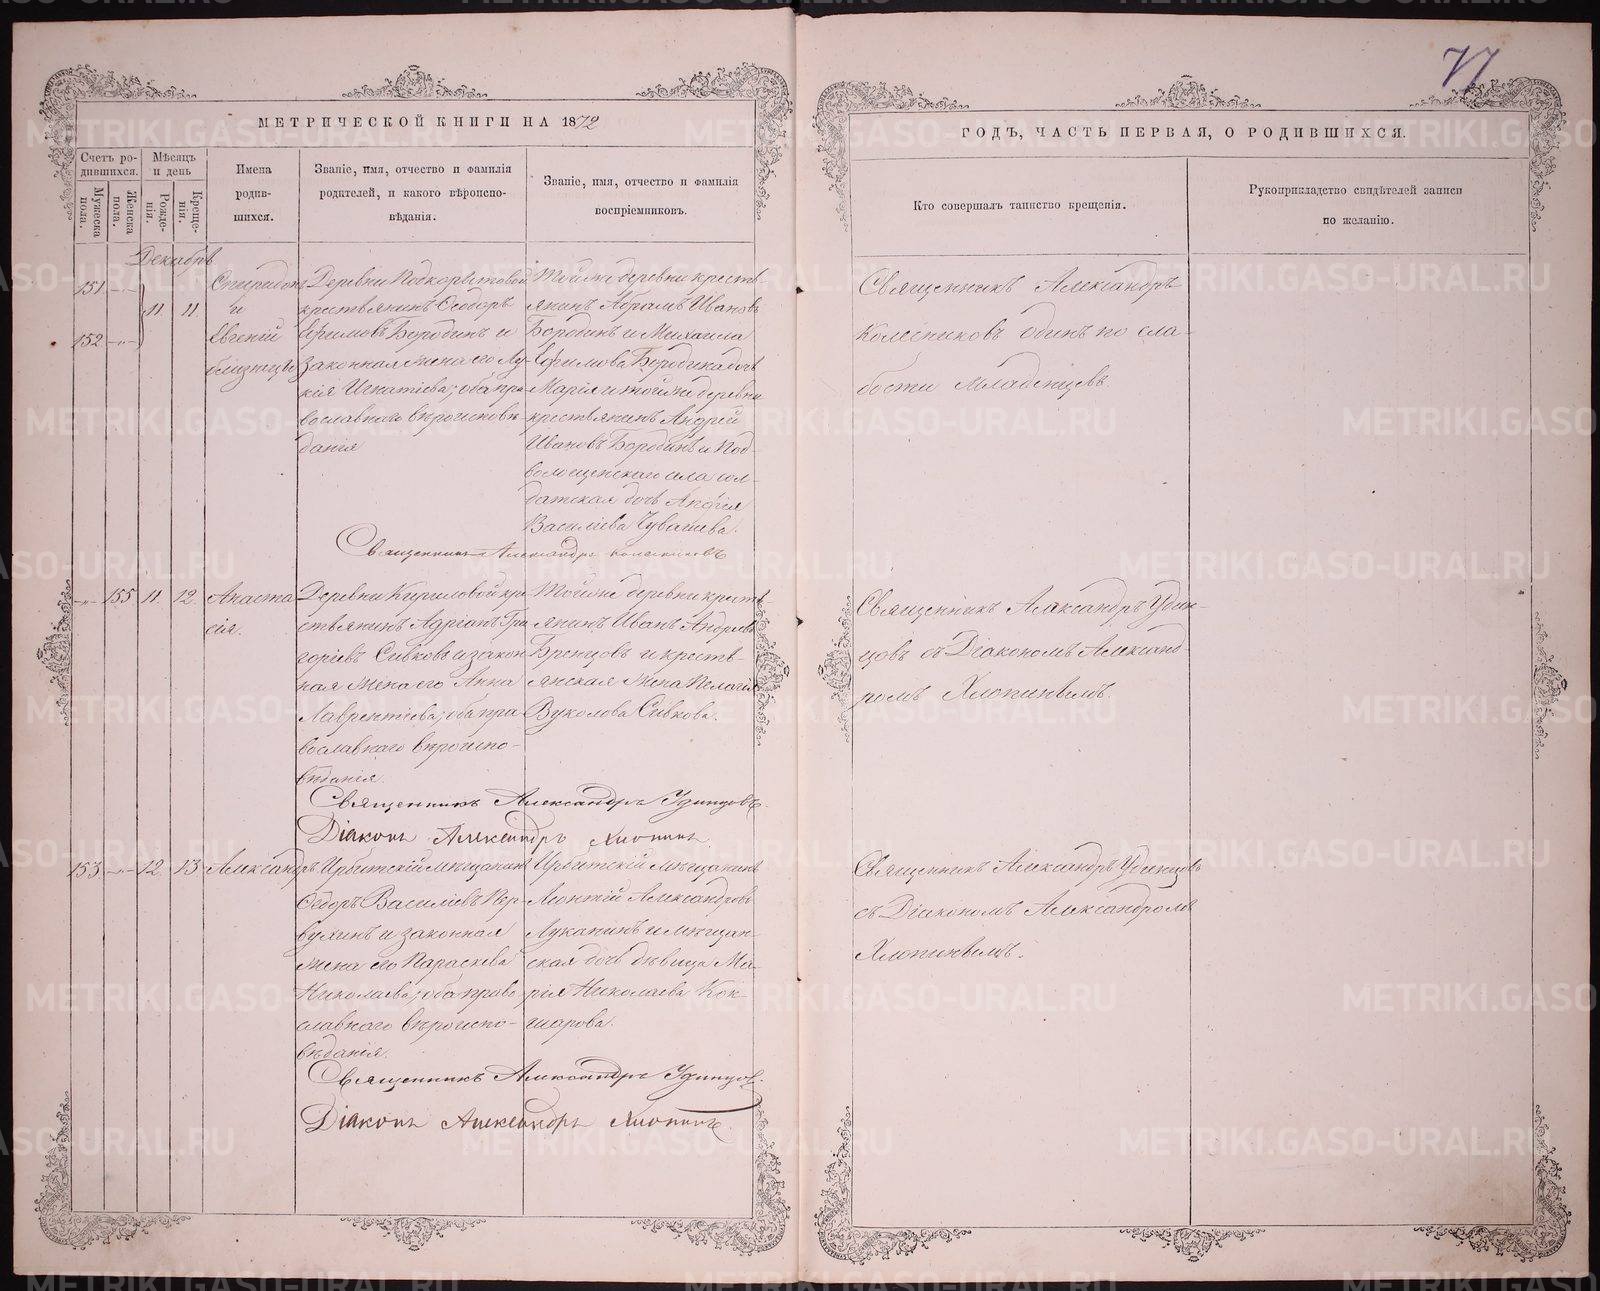 77
МЕТРИЧЕСКОЙ КНИГИ НА 1872
ГОДЪ, ЧАСТЬ ПЕРВАЯ, О РОДИВШИХСЯ.
Счетъ ро-
дившихся.
Мужеска
пола.
Женска
пола.
Мѣсяцъ
и день
Рожде-
нія.
Креще-
нія.
Имена
родив-
шихся.
Званіе, имя, отчество и фамилія
родителей, и какого вѣроиспо-
вѣданія.
Званіе, имя, отчество и фамилія
воспріемниковъ.
Кто совершалъ таинство крещенія.
Рукоприкладство свидѣтелей записи
по желанію.
Декабрь
151 -„-
152 -„-
11 11
Спиридонъ
и
Евгеній
близнецы
Деревни Подкорытовой
крестьянинъ Ѳеодоръ
Ефимовъ Бородинъ и
законная жена его Лу-
кія Игнатіева; оба пра-
вославнаго вѣроисповѣ-
данія
Той же деревни кресть-
янинъ Абрамъ Ивановъ
Бородинъ и Михаила
Ефимова Бородина дочь
Марія и той же деревни
крестьянинъ Андрей
Ивановъ Бородинъ и
села сол-
датская дочь
Василіева Чувашева.
Священникъ Александръ
Колесниковъ одинъ по сла-
бости младенцевъ
Священникъ Александръ Колесниковъ
-„- 155 11 12
Анаста
сія.
Деревни Кириловой кре-
стьянинъ Адріанъ Гри
горіевъ Сивковъ и закон
ная жена его Анна
Лаврентіева; оба пра-
вославнаго вѣроиспо-
вѣданія.
Той же деревни кресть-
янинъ Иванъ Андреевъ
и кресть-
янская жена Пелагія
Вуколова Сивкова.
Священникъ Александръ Удин-
цовъ съ Діакономъ Александ
ромъ Хлопинымъ.
Священникъ Александръ Удинцовъ.
Діаконъ Александръ Хлопинъ.
153 -„- 12 13
Александръ
Ирбитскій мѣщанинъ
Ѳедоръ Василіевъ Пер-
вухинъ и законная
жена его Параскева
Николаева; оба право
славнаго вѣроиспо-
вѣданія.
Ирбитскій мѣщанинъ
Леонтій Александровъ
Луканинъ и мѣщан-
ская дочь дѣвица Ма-
рія Николаева Кок-
шарова.
Священникъ Александръ Удинцовъ
съ Діакономъ Александромъ
Хлопинымъ.
Священникъ Александръ Удинцовъ.
Діаконъ Александръ Хлопинъ.
METRIKI.GASO-URAL.RU